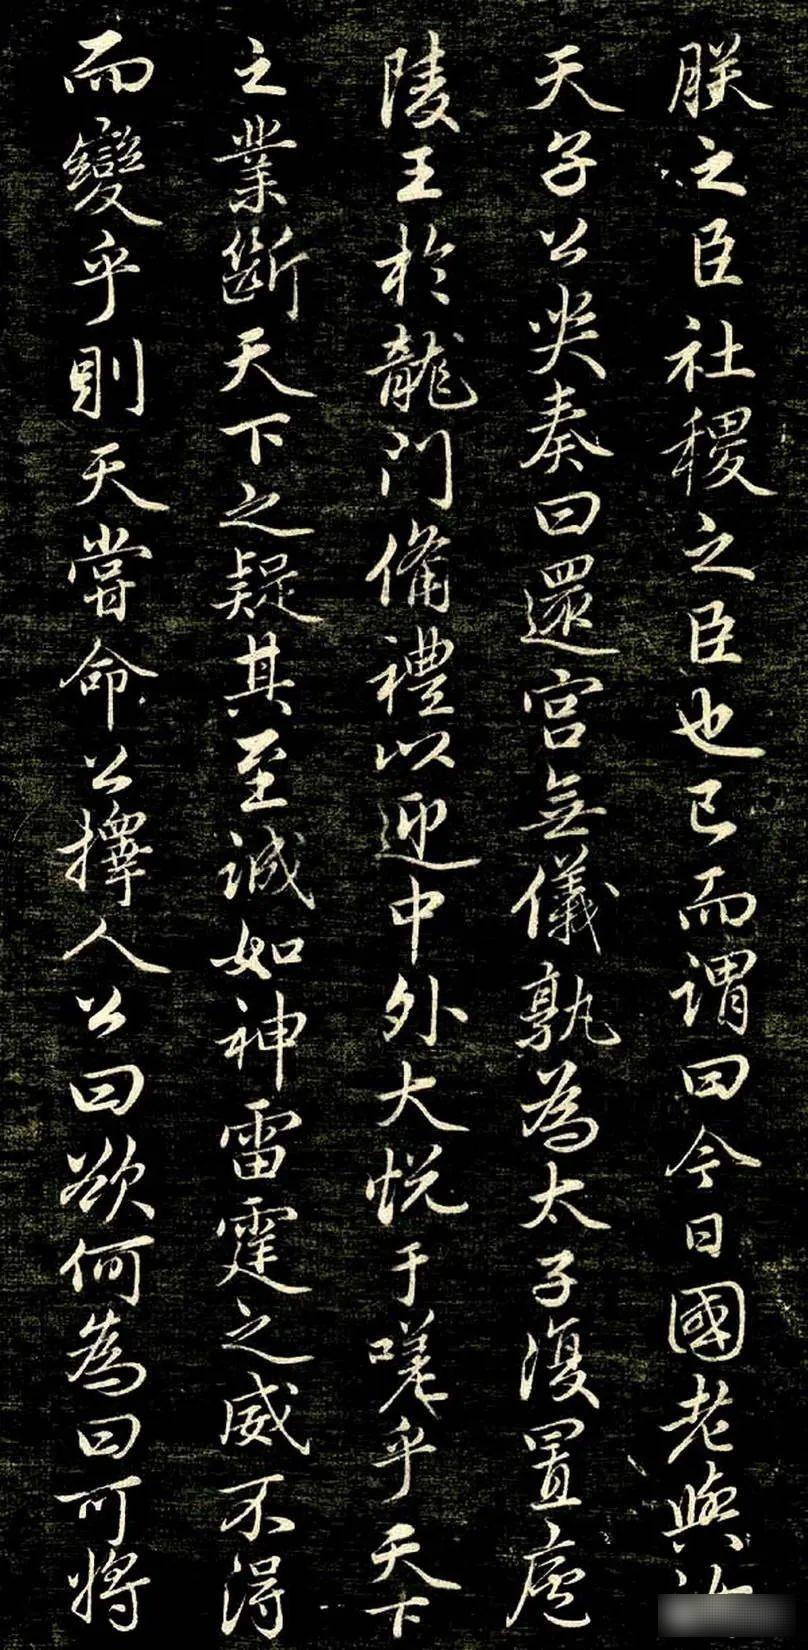 朕之臣社稷之臣也已而謂曰今日國老與
天子公哭奏曰還宮無儀孰為太子復置廬
陵王於龍門備禮以迎中外大悅于嗟乎天下
之業斷天下之疑其至誠如神雷霆之威不得
而變乎則天嘗命公擇人公曰欲何為曰可將